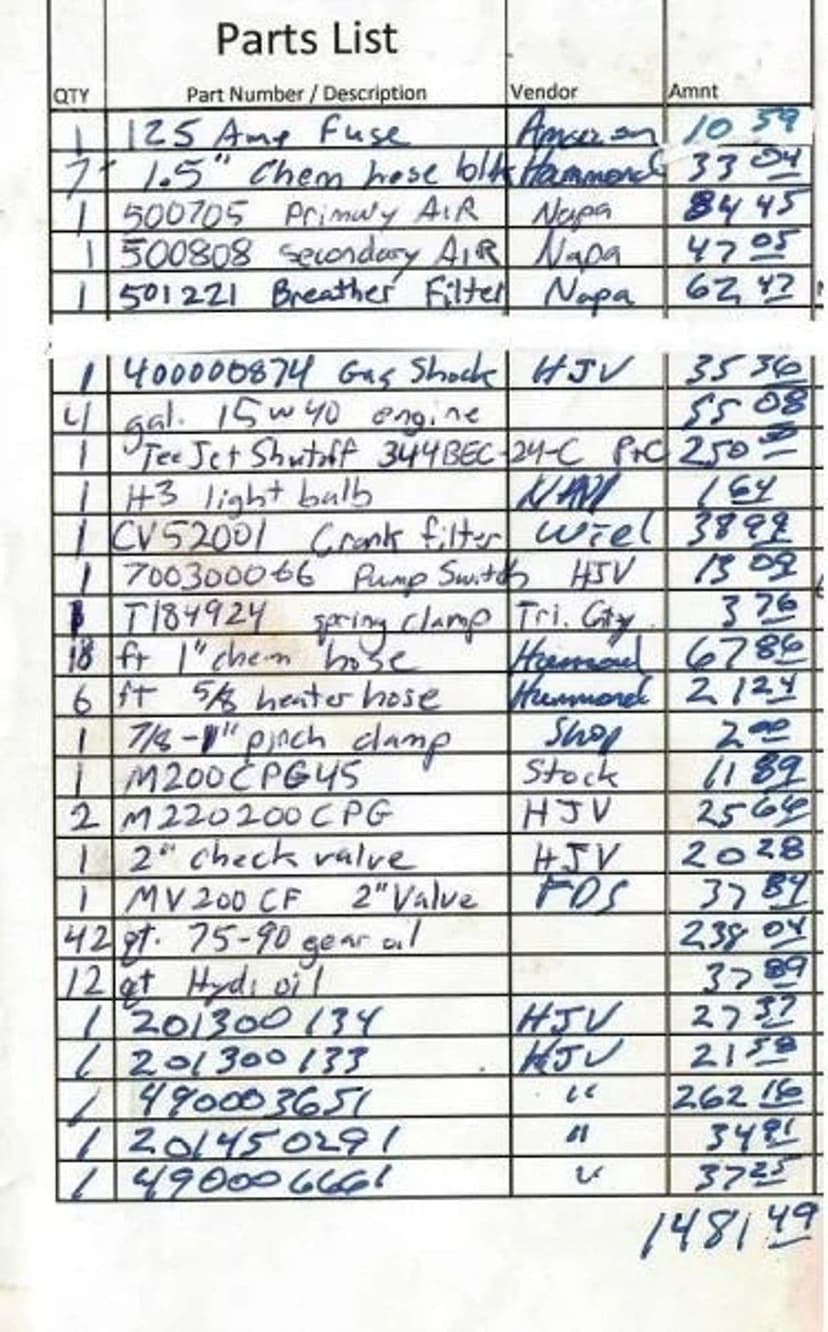 Parts List
QTY Part Number / Description Vendor Amnt
1 125 Amp Fuse 10 59
7 1.5" Chem hose blk Hammond 33 04
1 500705 Primary AIR Napa 84 45
1 500808 Secondary AIR Napa 47 05
1 501221 Breather Filter Napa 62 47
1 400000874 Gas Shock HJV 35 36
4 gal. 15w40 engine 55 08
1 TeeJet Shutoff 344BEC-24-C PtC 250 00
1 H3 light bulb 1 64
1 CV52001 Crank filter Wiel 38 99
1 700300066 Pump Switch HJV 13 09
1 T184924 spring clamp Tri. City 3 76
18 ft 1" chem hose Hammond 67 86
6 ft 5/8 heater hose Hammond 21 24
1 7/8-1" pinch clamp Shop 2 00
1 M200CPG45 Stock 11 89
2 M220200CPG HJV 25 64
1 2" check valve HJV 20 28
1 MV200CF 2" Valve FDS 37 84
42 qt. 75-90 gear oil 238 04
12 qt Hyd. oil 37 89
1 201300134 HJV 27 37
1 201300133 HJV 21 58
1 490003651 " 262 16
1 201450291 " 34 91
1 490006661 " 37 25
1481 49